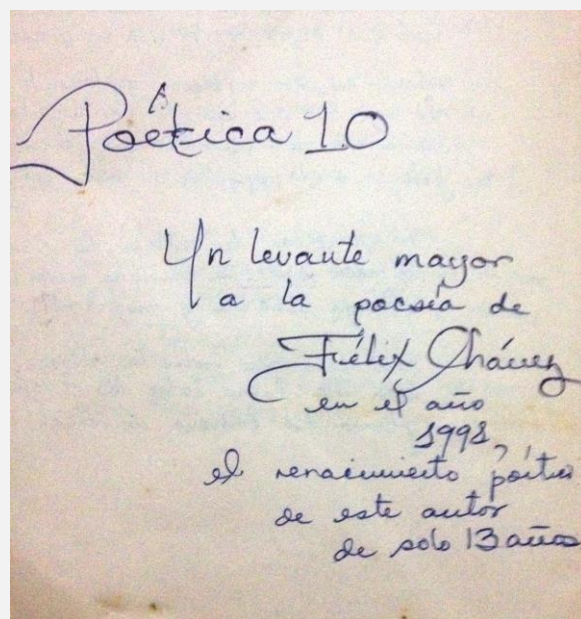 Poética 10
Un levante mayor
a la poesía de
Félix Chávez
en el año
1991,
el renacimiento poético
de este autor
de solo 13 años